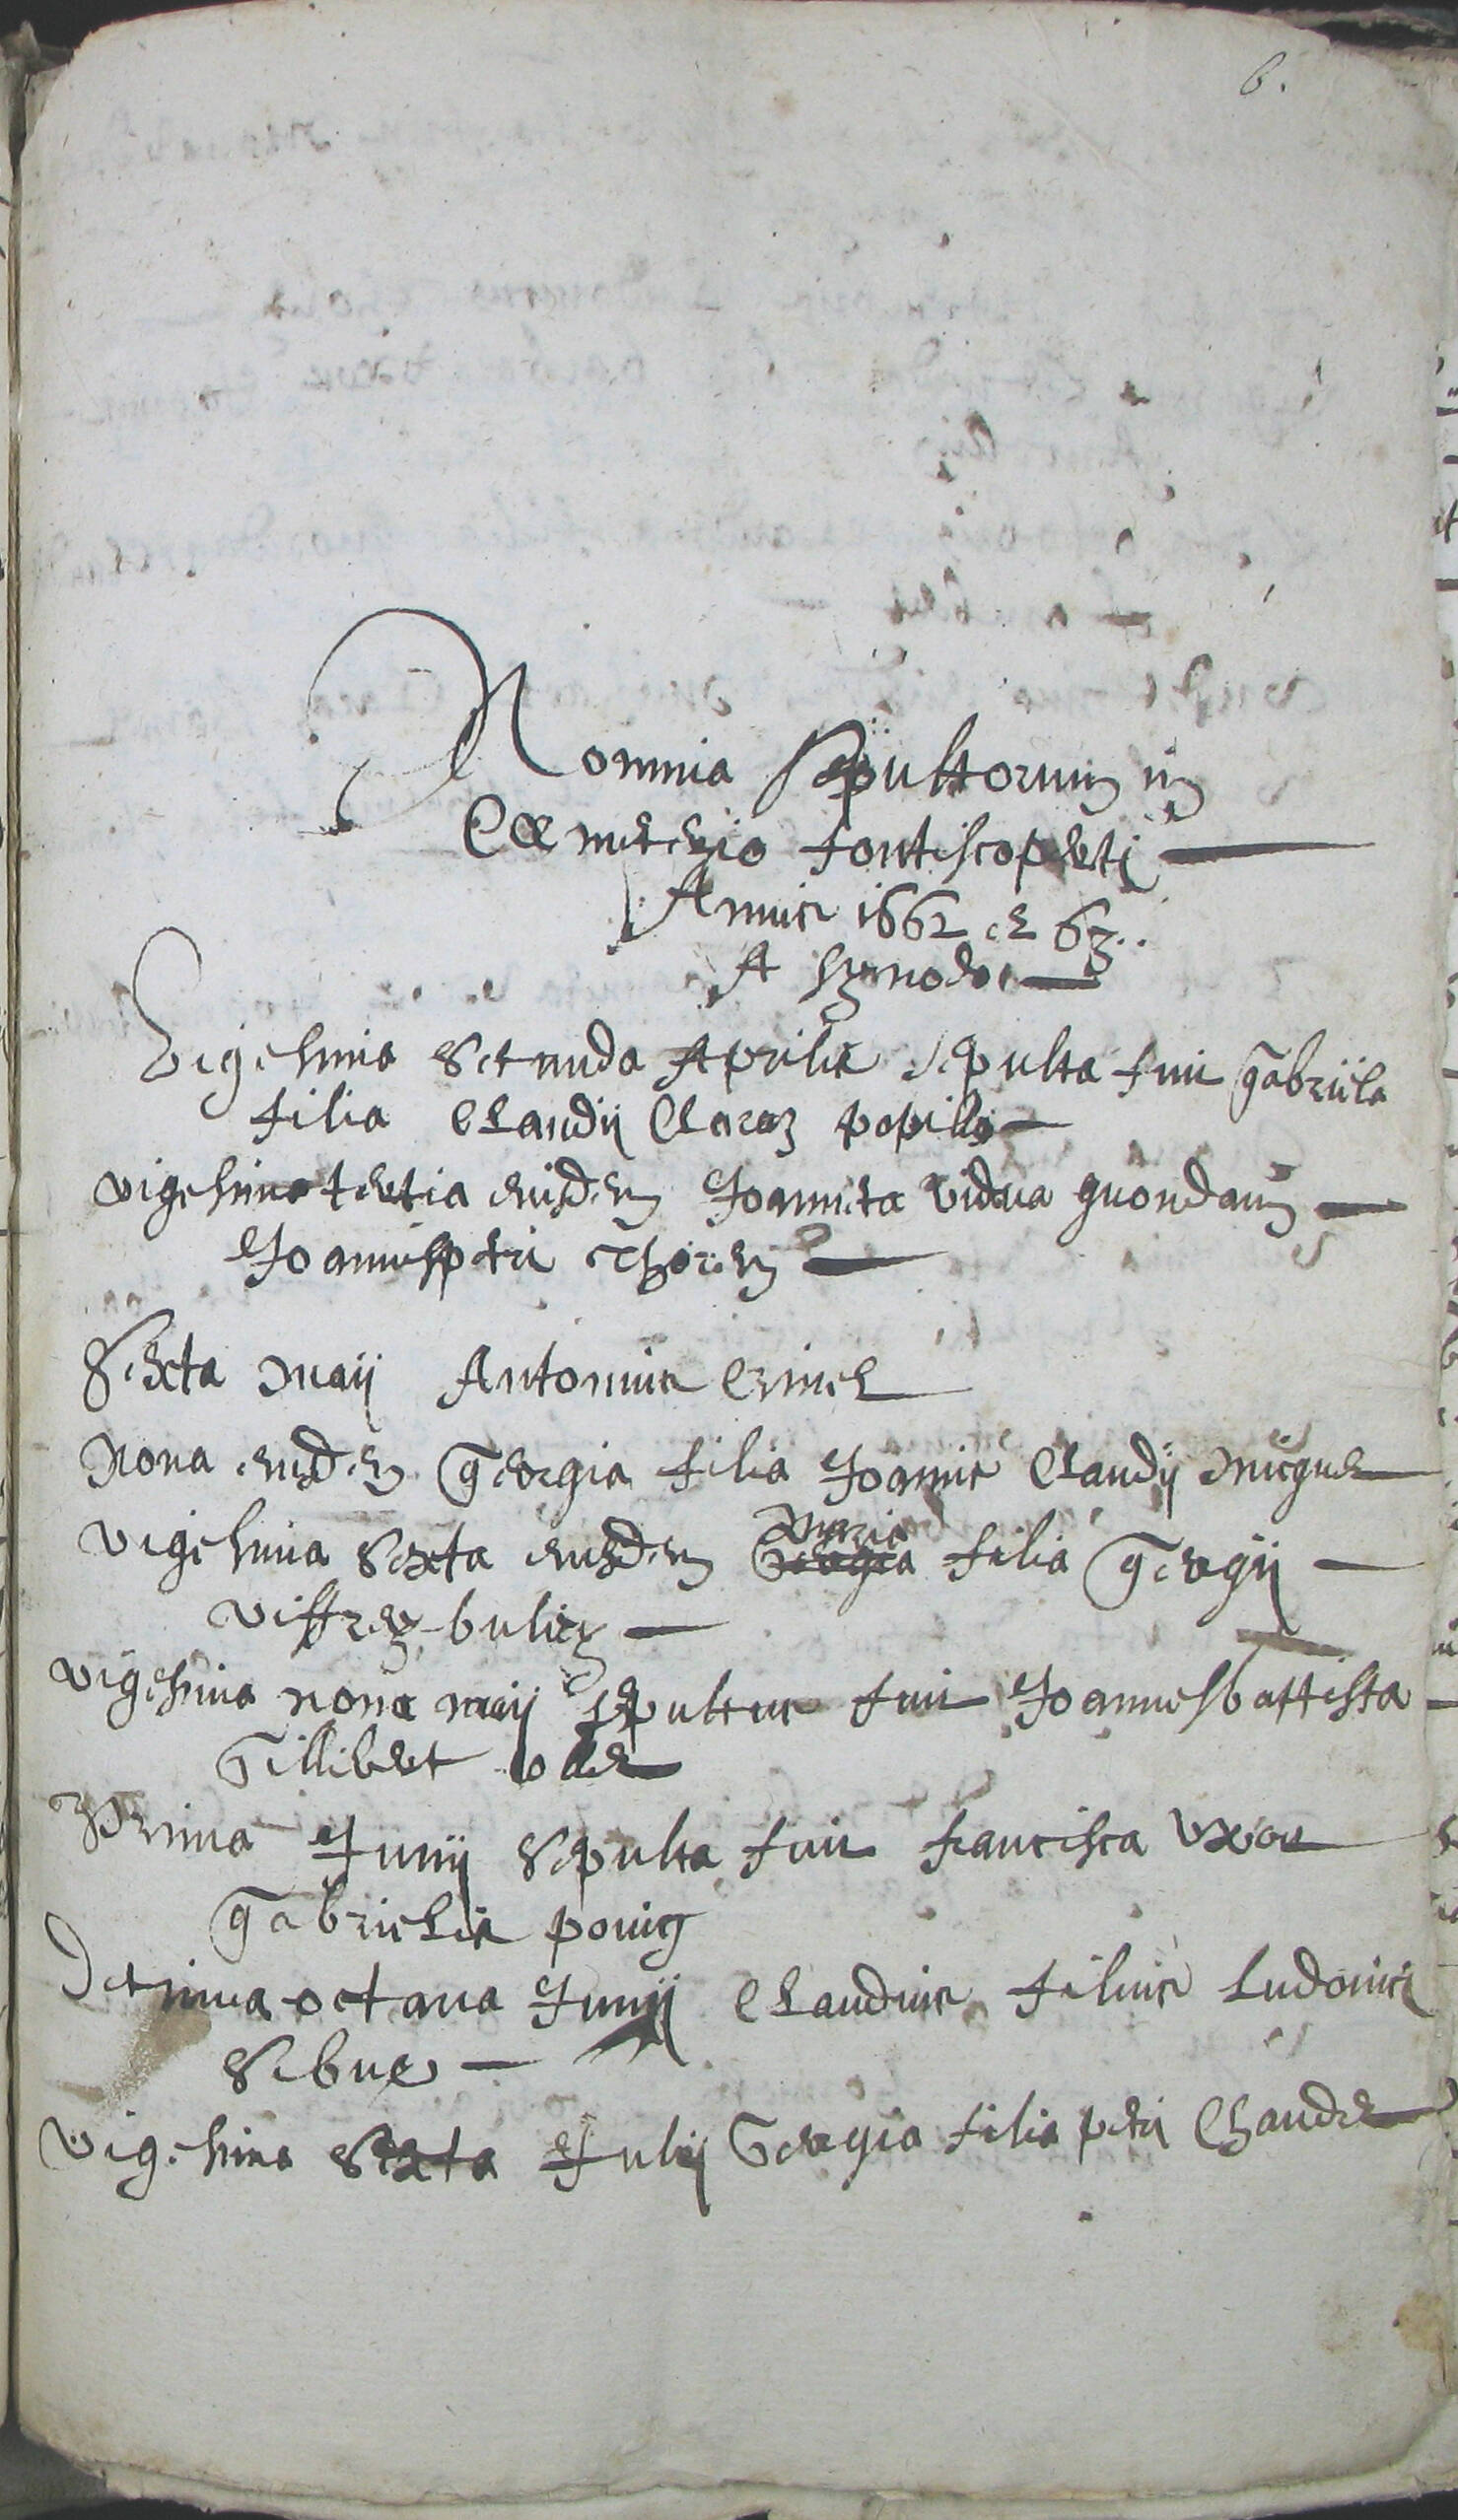 6.
Nomina Sepultorum in
Cœmeterio fontiscoperti
Annis 1662 et 63..
A Synodo
Vigesima Secunda Aprilis sepulta fuit Gabriela
filia Claudii Claraz
vigesima tertia eiusdem Joanneta vidua quondam
Joannispetri
Sexta Maii Antonius
Nona eiusdem Georgia filia Joannis Claudii
vigesima Sexta eiusdem Maria filia Georgii
Viffrey
vigesima nona maii sepultus fuit Joannesbattista
Gillibert
Prima Junii Sepulta fuit francisca uxor
Gabrielis
Decima octava Junii Claudius filius Ludovici
Sebue
vigesima Sexta Julii Georgia filia petri